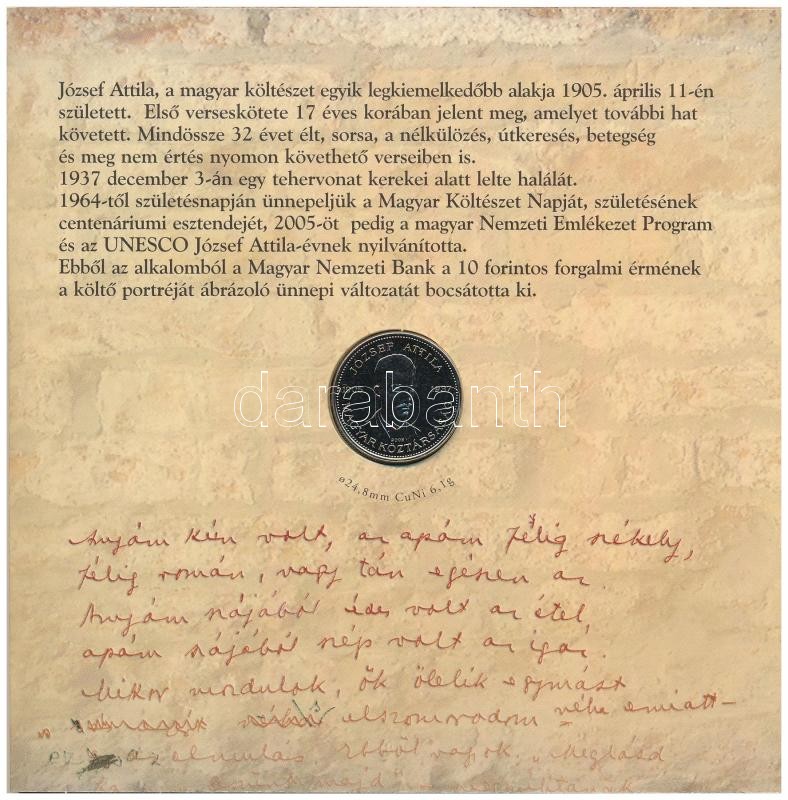 József Attila, a magyar költészet egyik legkiemelkedőbb alakja 1905. április 11-én
született. Első verseskötete 17 éves korában jelent meg, amelyet további hat
követett. Mindössze 32 évet élt, sorsa, a nélkülözés, útkeresés, betegség
és meg nem értés nyomon követhető verseiben is.
1937 december 3-án egy tehervonat kerekei alatt lelte halálát.
1964-től születésnapján ünnepeljük a Magyar Költészet Napját, születésének
centenáriumi esztendejét, 2005-öt pedig a magyar Nemzeti Emlékezet Program
és az UNESCO József Attila-évnek nyilvánította.
Ebből az alkalomból a Magyar Nemzeti Bank a 10 forintos forgalmi érmének
a költő portréját ábrázoló ünnepi változatát bocsátotta ki.
JÓZSEF ATTILA
1905 1937
darabanth
2005
MAGYAR KÖZTÁRSASÁG
ø24,8mm CuNi 6,1g
Anyám kún volt, az apám félig székely,
félig román, vagy tán egészen az.
Anyám szájából édes volt az étel,
apám szájából szép volt az igaz.
Mikor mozdulok, ők ölelik egymást
elszomorodom néha emiatt-
ez az elmulás. Ebből vagyok. „Meglásd